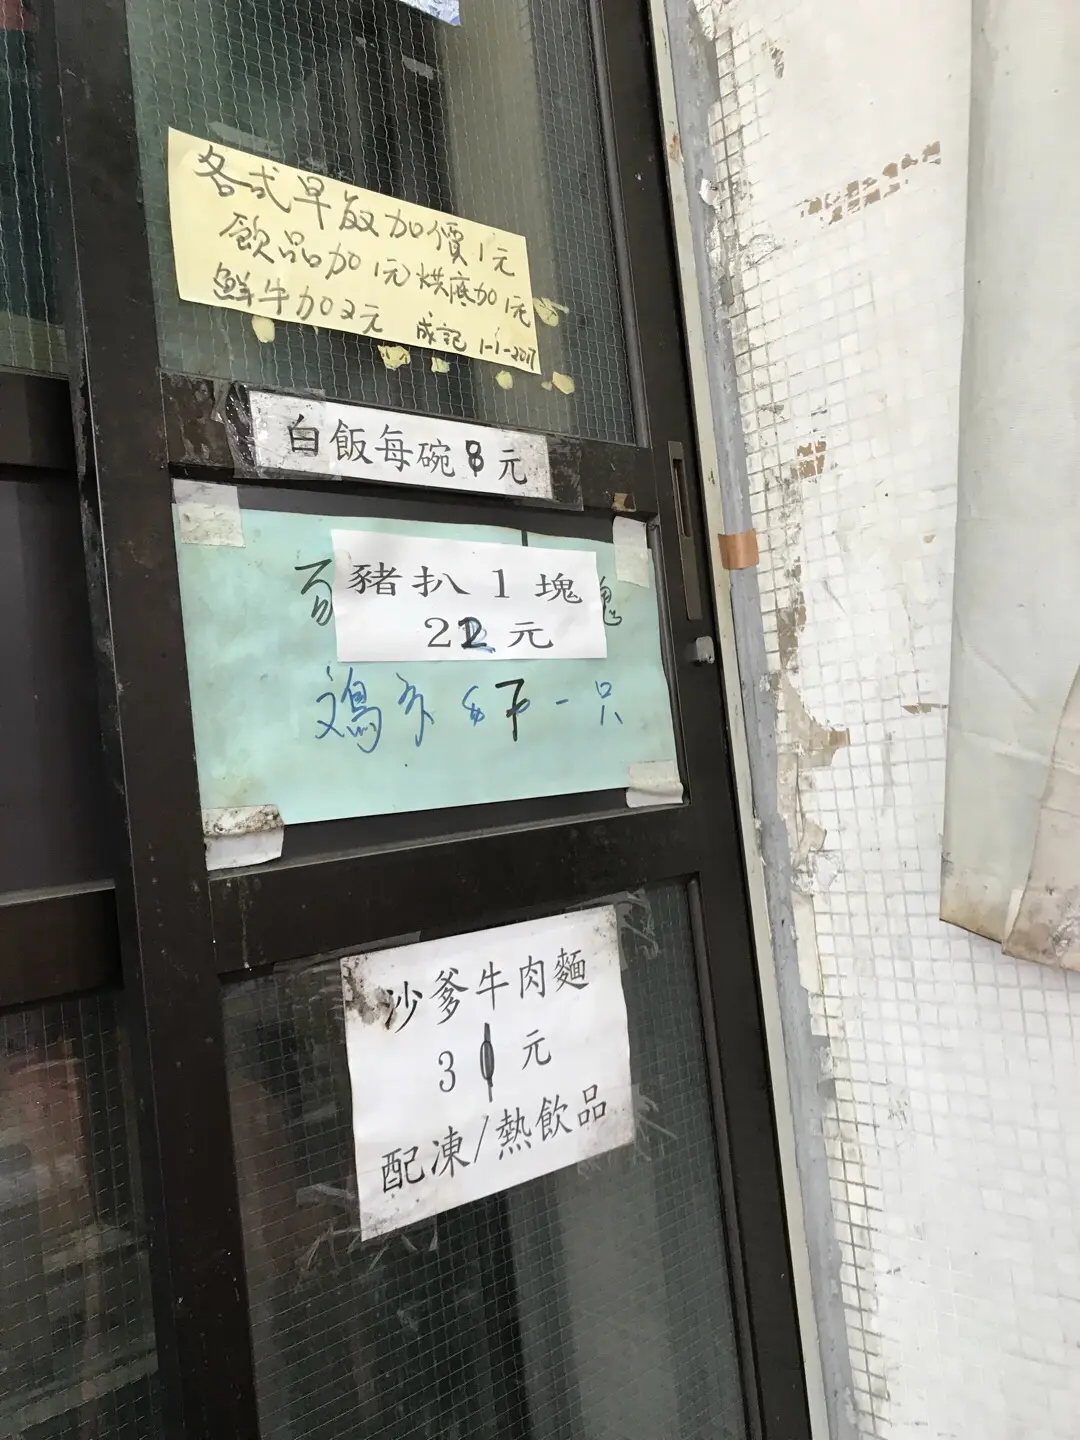 各式早飯加價1元
飲品加1元烘底加1元
鮮牛加2元 成記 1-1-2017
白飯每碗8元
豬扒1塊
22元
鷄 7 一只
沙爹牛肉麵
31元
配凍/熱飲品